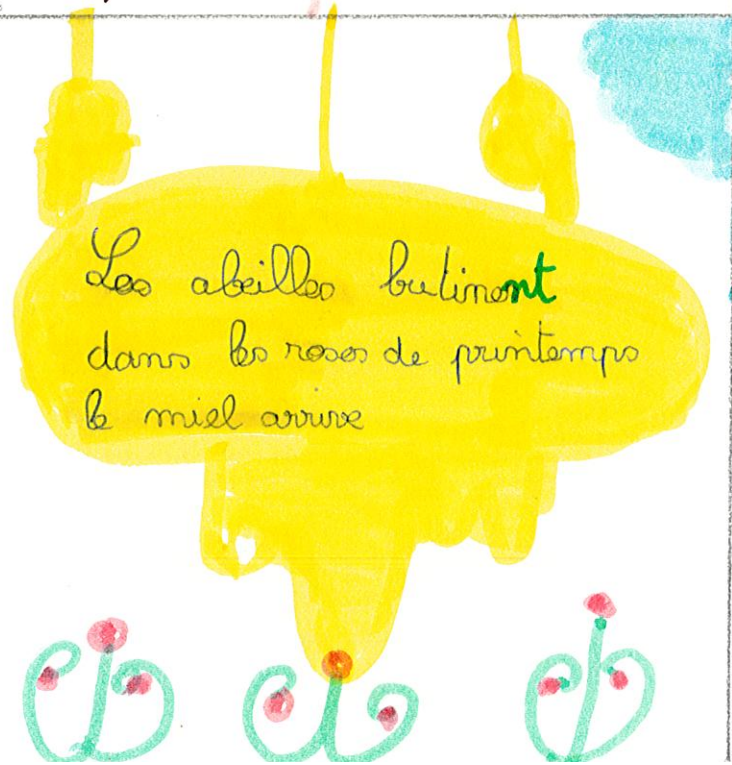 Les abeilles butinent
dans les roses de printemps
le miel arrive